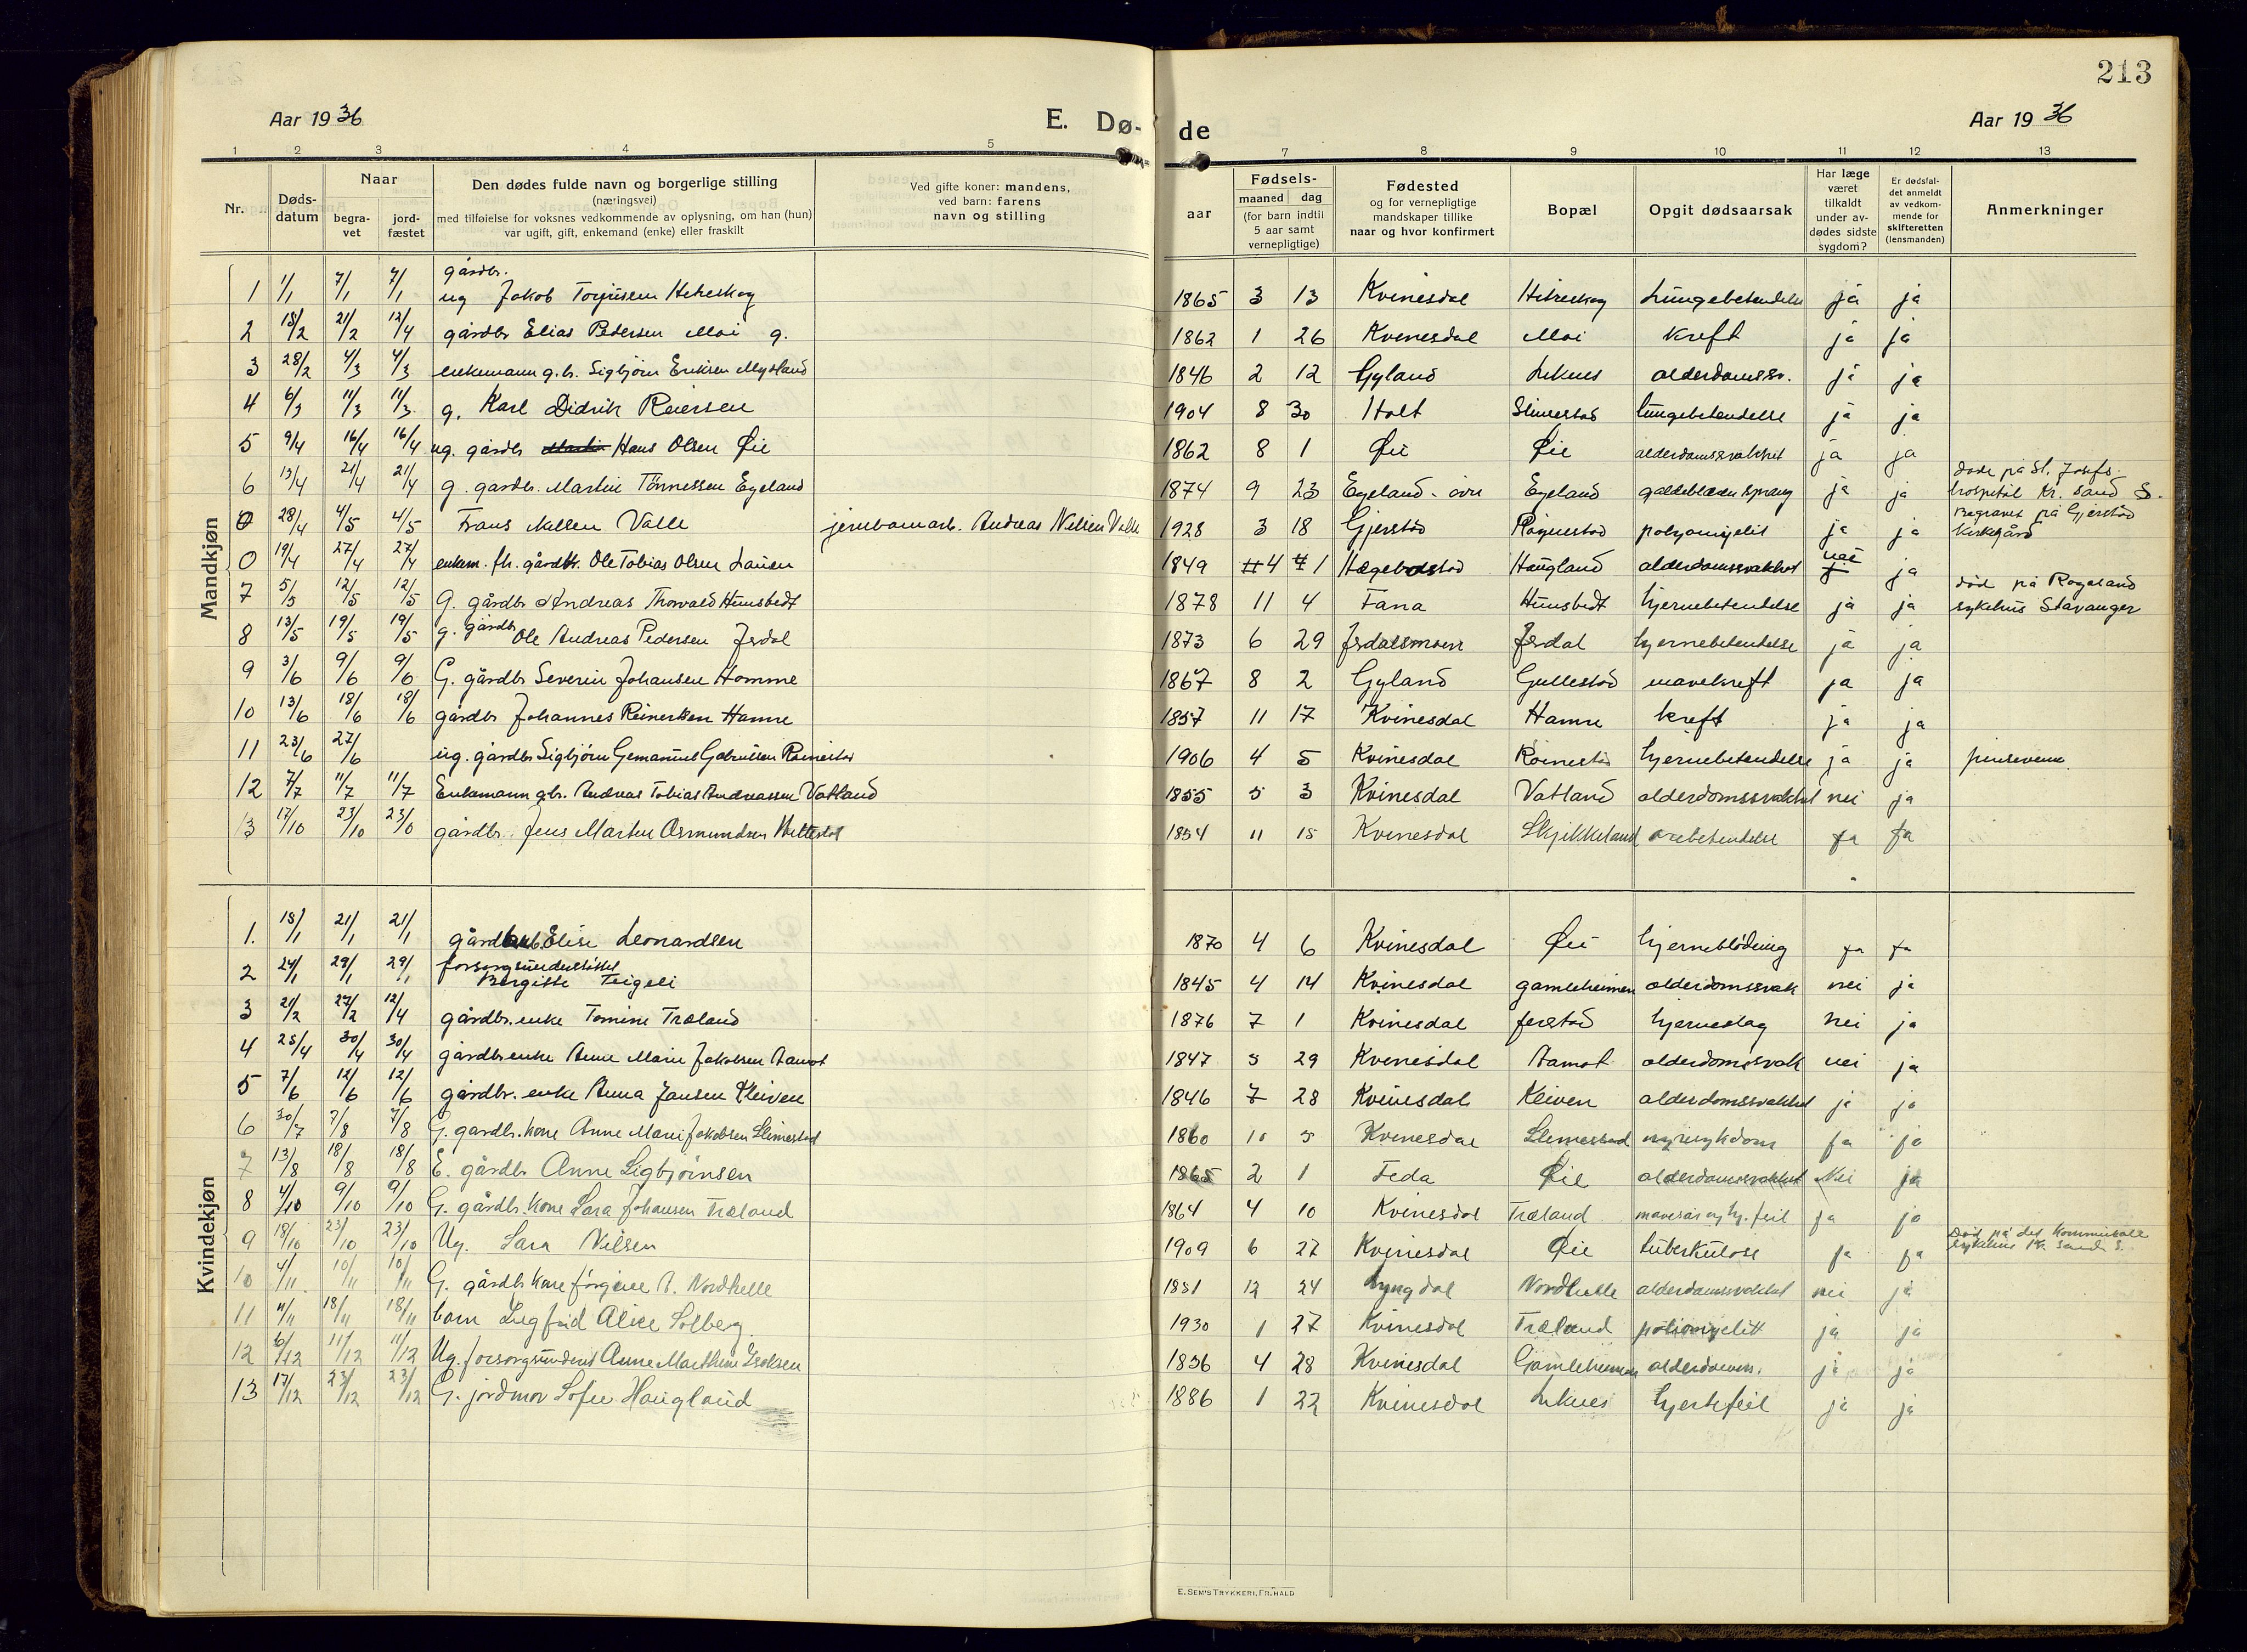 213
Aar 1936 E. Dø- de Aar 1936
1 2 3 4 5 7 8 9 10 11 12 13
Nr. Døds-datum Naar begra-vet jord-fæstet Den dødes fulde navn og borgerlige stilling (næringsvei) med tilføielse for voksnes vedkommende av oplysning, om han (hun) var ugift, gift, enkemand (enke) eller fraskilt Ved gifte koner: mandens, ved barn: farens navn og stilling aar Fødsels- maaned dag (for barn indtil 5 aar samt vernepligtige) Fødested og for vernepligtige mandskaper tillike naar og hvor konfirmert Bopæl Opgit dødsaarsak Har læge været tilkaldt under av-dødes sidste sygdom? Er dødsfal-det anmeldt av vedkom-mende for skifteretten (lensmanden) Anmerkninger
Mandkjøn
1 1/1 7/1 7/1 gårdbr. ug Jakob Torjusen 1865 3 13 Kvinesdal Lungebetendelse ja ja
2 18/2 21/2 12/4 gårdbr Elias Pedersen Moi g. 1862 1 26 Kvinesdal Moi kreft ja ja
3 28/2 4/3 4/3 enkemann g.br. Sigbjørn Eriksen Mygland 1846 2 12 Gyland Liknes alderdomssv. ja ja
4 6/3 11/3 11/3 g. Karl Didrik Reiersen 1904 8 30 Holt Slimestad lungebetendelse ja ja
5 9/4 16/4 16/4 ug. gårdbr Hans Olsen Øie 1862 8 1 Øie Øie alderdomssvakhet ja ja
6 13/4 21/4 21/4 g. gardbr. Martin Tönnessen Egeland 1874 9 23 Egeland - övre Egeland galdeblæren sprang ja ja döde på St. Josefs hospital Kr. sand S.
0 28/4 4/5 4/5 Frans Nilsen Valle jernbanearb. Andreas Nilsen Valle 1928 3 18 Gjerstad polyomyelit ja ja Begravet på Gjerstad kirkegård
0 19/4 27/4 27/4 enkem. fh. gårdbr. Ole Tobias Olsen 1849 4 1 Hægebostad Haugland alderdomssvakhet nei ja
7 5/5 12/5 12/5 G. gårdbr Andreas Thorvald Hunsbedt 1878 11 4 Fana Hunsbedt hjernebetendelse ja ja död på Rogaland sykehus Stavanger
8 13/5 19/5 19/5 g. gårdbr Ole Andreas Pedersen Jerdal 1873 6 29 Jerdalsmoen Jerdal hjernebetendelse ja ja
9 3/6 9/6 9/6 G. gårdbr Severin Johansen Homme 1867 8 2 Gyland Gullestad mavekreft ja ja
10 13/6 18/6 18/6 gårdbr Johannes Reinertsen Hamre 1857 11 17 Kvinesdal Hamre kreft ja ja
11 23/6 27/6 ug. gårdbr Sigbjörn Gemanuel Gabrielsen 1906 4 5 Kvinesdal hjernebetendelse ja ja pinsevenn
12 7/7 11/7 11/7 Enkemann gbr. Andreas Tobias Andreassen Vatland 1855 5 3 Kvinesdal Vatland alderdomssvakhet nei ja
13 17/10 23/10 23/0 gårdbr. Jens Martin Osmundsen 1854 11 15 Kvinesdal ja ja
Kvindekjøn
1. 18/1 21/1 21/1 Elise Leonardsen 1870 4 6 Kvinesdal Øie hjerneblödning ja ja
2 24/1 29/1 29/1 forsorgsunderstöttet Bergitte Teigeli 1845 4 14 Kvinesdal gamleheimen alderdomssvak nei ja
3 21/2 27/2 12/4 gårdbr. enke Tomine Træland 1876 7 1 Kvinesdal hjerneslag nei ja
4 25/4 30/4 30/4 gårdbr enke Anne Marie Jakobsen Aamot 1847 5 29 Kvinesdal Aamot alderdomssvak nei ja
5 7/6 12/6 12/6 gårdbr. enke Anna Jansen Kleiven 1846 7 28 Kvinesdal Kleiven alderdomssvakhet ja ja
6 30/7 7/8 7/8 G. gardbr. kone Anne Marie Jakobsen Slimestad 1860 10 5 Kvinesdal Slimestad nyresykdom ja ja
7 13/8 18/8 18/8 E. gårdbr Anne Sigbjörnsen 1865 2 1 Feda Øie alderdomssvakhet Nei ja
8 4/10 9/10 9/10 G. gårdbr. kone Sara Johansen Træland 1864 4 10 Kvinesdal Træland mavesår og hj. feil ja ja
9 18/10 23/10 23/10 Ug. Sara Nilsen 1909 6 27 Kvinesdal Øie tuberkulose ja ja Död på det kommunale sykehus Kr. sand S.
10 4/11 10/11 10/11 G. gårdbr kone Jörgine A. Nordhelle 1851 12 24 Lyngdal Nordhelle alderdomssvakhet nei ja
11 11/11 18/11 18/11 barn Sigfrid Alice Solberg 1930 1 27 Kvinesdal Træland poliomyelitt ja ja
12 6/12 11/12 11/12 Ug. forsorgsunderst Anne Marthine Isaksen 1836 4 28 Kvinesdal Gamleheimen alderdomssv. ja ja
13 17/12 23/12 23/12 G. jordmor Sofie Haugland 1886 1 22 Kvinesdal Liknes hjertefeil ja ja
E. SEM'S TRYKKERI, FR. HALD